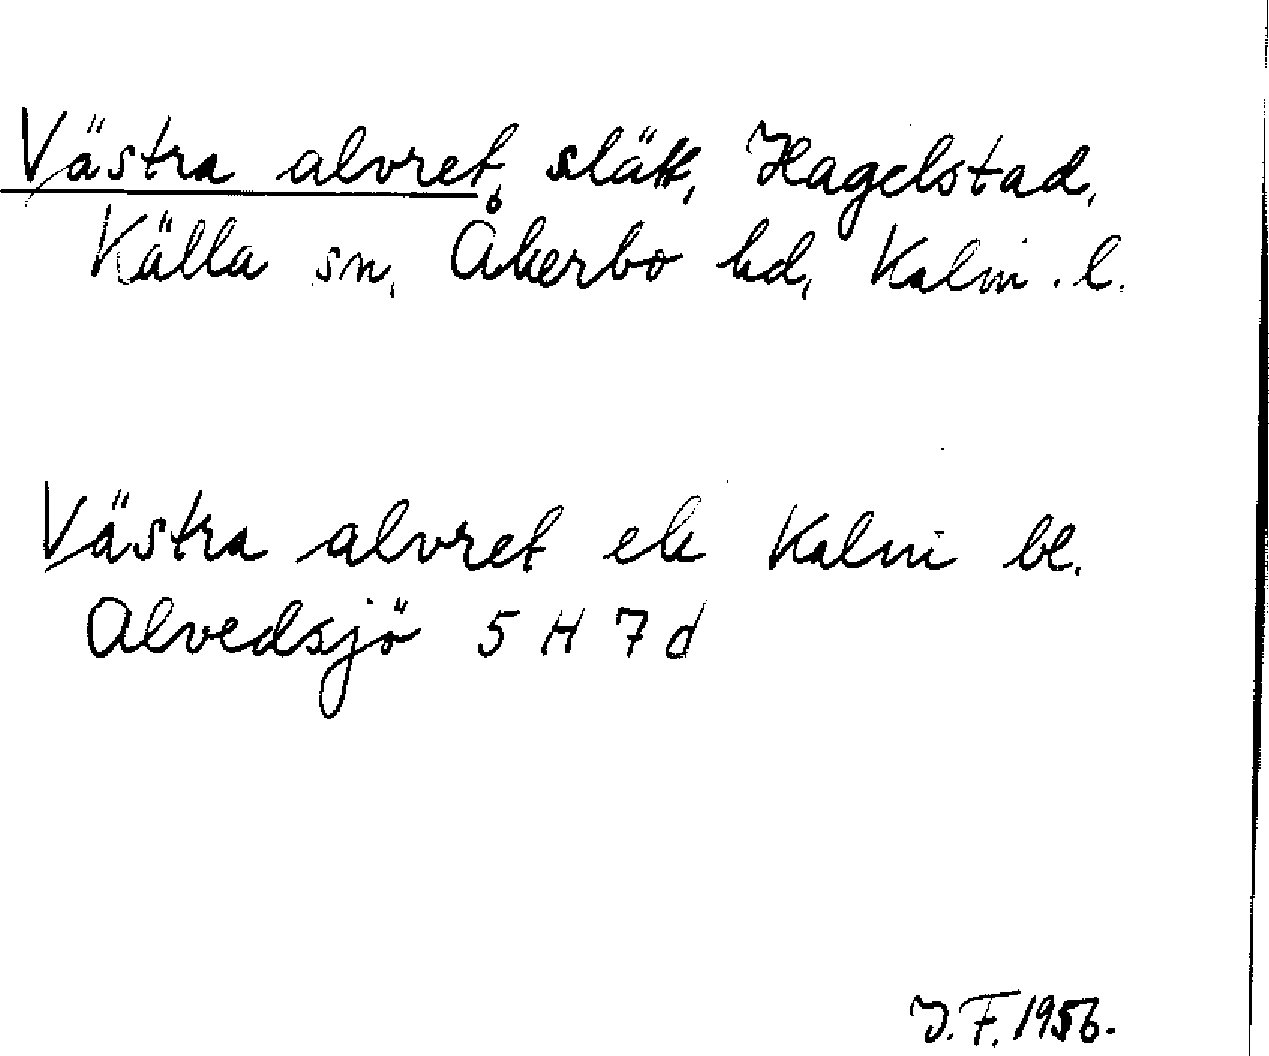 Västra alvret, slätt, Hagelstad,
Källa sn, Åkerbo hd, Kalm. l.
Västra alvret ek Kalm bl.
Alvedsjö 5 H 7 d
J. F. 1956.